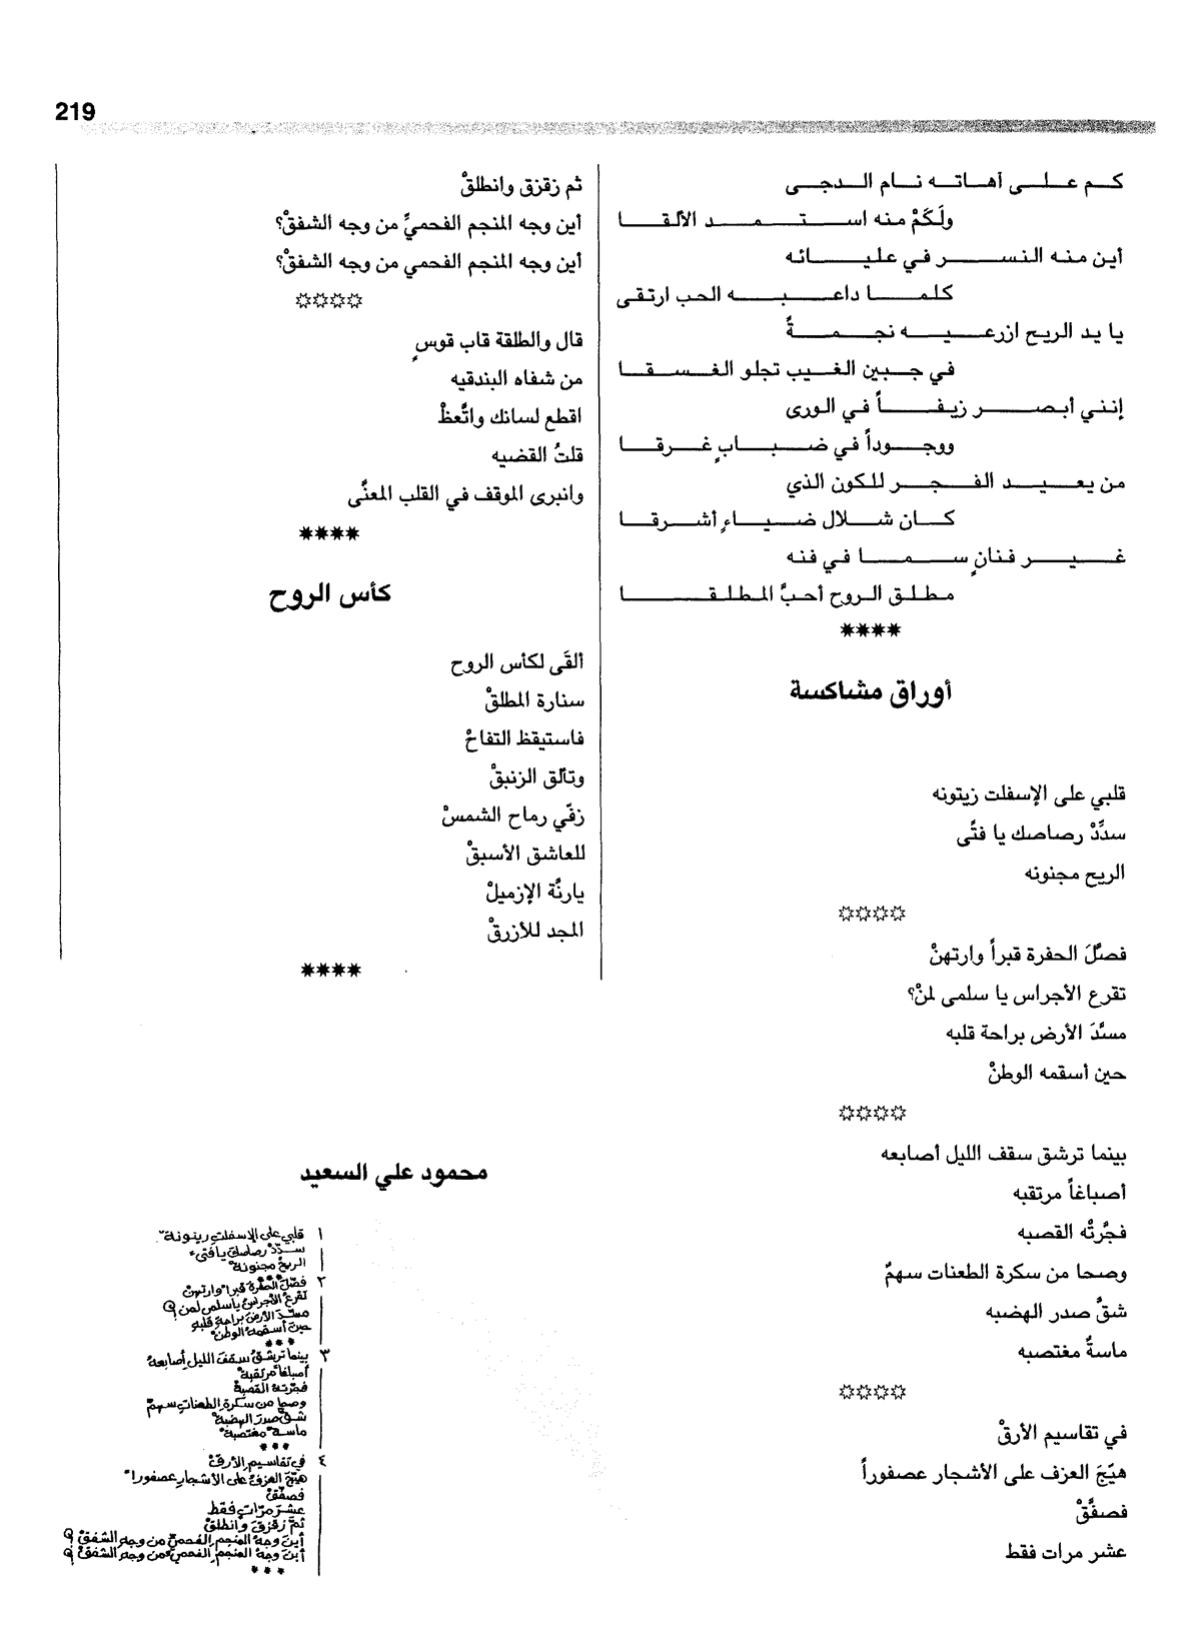 219
كم على آهاته نام الدجى
ولَكَمْ منه استمد الألقا
أين منه النسر في عليائه
كلما داعبه الحب ارتقى
يا يد الريح ازرعيه نجمةً
في جبين الغيب تجلو الغسقا
إنني أبصر زيفاً في الورى
ووجوداً في ضبابٍ غرقا
من يعيد الفجر للكون الذي
كان شلال ضياءٍ أشرقا
غير فنانٍ سما في فنه
مطلق الروح أحبَّ المطلقا
****
أوراق مشاكسة
قلبي على الإسفلت زيتونه
سدِّدْ رصاصك يا فتًى
الريح مجنونه
****
فصِّلَ الحفرة قبراً وارتهنْ
تقرع الأجراس يا سلمى لمنْ؟
مسَّدَ الأرض براحة قلبه
حين أسقمه الوطنْ
****
بينما ترشق سقف الليل أصابعه
أصباغاً مرتقبه
فجَّرتْه القصبه
وصحا من سكرة الطعنات سهمٌ
شقَّ صدر الهضبه
ماسةٌ مغتصبه
****
في تقاسيم الأرقْ
هيّجَ العزف على الأشجار عصفوراً
فصفَّقْ
عشر مرات فقط
ثم زقزق وانطلقْ
أين وجه المنجم الفحميِّ من وجه الشفقْ؟
أين وجه المنجم الفحمي من وجه الشفقْ؟
****
قال والطلقة قاب قوسٍ
من شفاه البندقيه
اقطع لسانك واتَّعظْ
قلتُ القضيه
وانبرى الموقف في القلب المعنَّى
****
كأس الروح
ألقَى لكأس الروح
سنارة المطلقْ
فاستيقظ التفاحُ
وتألق الزنبقْ
زفّي رماح الشمسْ
للعاشق الأسبقْ
يارنَّة الإزميلْ
المجد للأزرقْ
****
محمود علي السعيد
١ قلبي على الإسفلت زيتونة
سدّدْ رصاصك يا فتى
الريحُ مجنونة
٢ فصّلَ الحفرة قبراً وارتهنْ
تقرعُ الأجراسُ ياسلمى لمن؟
مسّدَ الأرضَ براحةِ قلبهِ
حينَ أسقمهُ الوطنْ
***
٣ بينما ترشقُ سقفَ الليلِ أصابعهُ
أصباغاً مرتقبة
فجرّتهُ القصبةْ
وصحا من سكرةِ الطعناتِ سهمٌ
شقّ صدرَ الهضبةْ
ماسة مغتصبة
***
٤ في تقاسيم الأرقْ
هيّجَ العزفُ على الأشجارِ عصفوراً
فصفّقْ
عشرَ مرّاتٍ فقط
ثمّ زقزقَ وانطلقْ
أينَ وجهُ المنجمِ الفحميّ من وجهِ الشفقْ؟
أينَ وجهُ المنجمِ الفحميّ من وجهِ الشفقْ؟
***